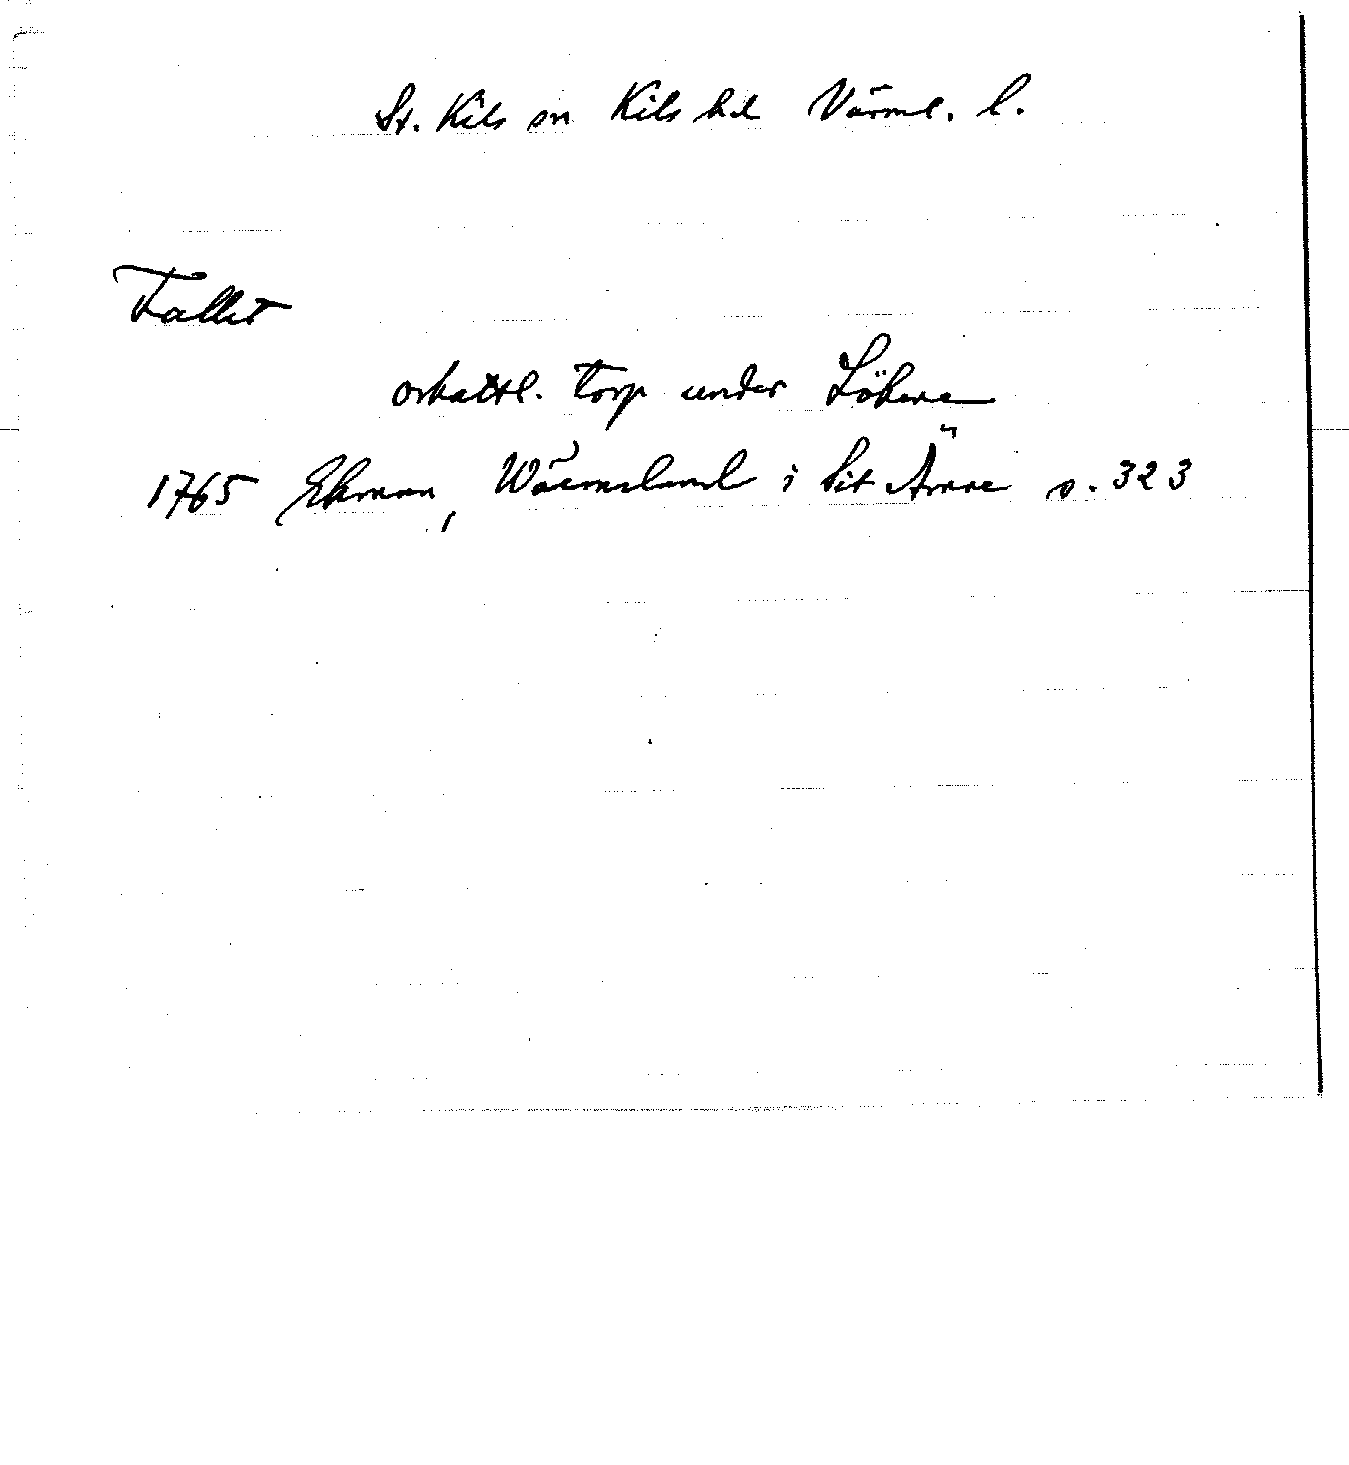 St. Kils sn Kils hd Värml. l.
Fallet
oskattl. torp under Lökene
1765 Ekman, Wärmeland i sit Ämne s. 323